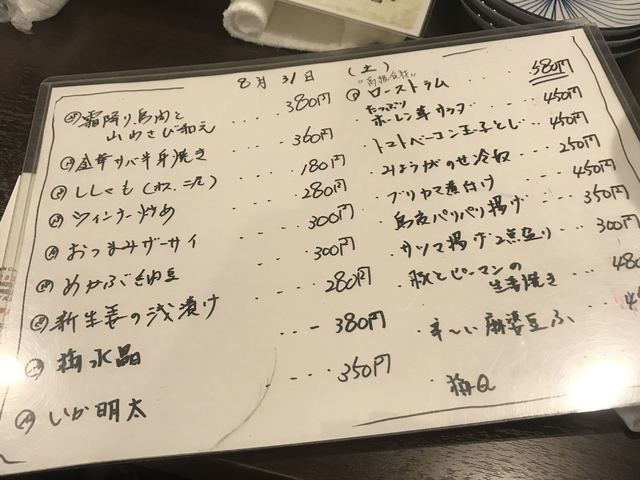 8月31日 (土)
霜降り鳥肉と
山わさび和え ････ 380円
金華サバ半身焼き ･･･ 360円
ししゃも ･･･ 180円
ウインナー炒め ･･･ 280円
おつまみザーサイ ･･･ 300円
めかぶ納豆 ･･･ 300円
新生姜の浅漬け ･･･ 280円
梅水晶 ･･･ 380円
いか明太 ････ 350円
ローストラム 580円
たっぷり
ホーレン草サラダ ････ 450円
トマトベーコン玉子とじ ･･ 450円
みょうがのせ冷奴 ････ 250円
ブリカマ煮付け ････ 450円
鳥皮パリパリ揚げ ･･･ 350円
サツマ揚げ2点盛り ･･･ 300円
豚とピーマンの
生姜焼き ･･･ 480
辛〜い麻婆豆ふ
梅Q